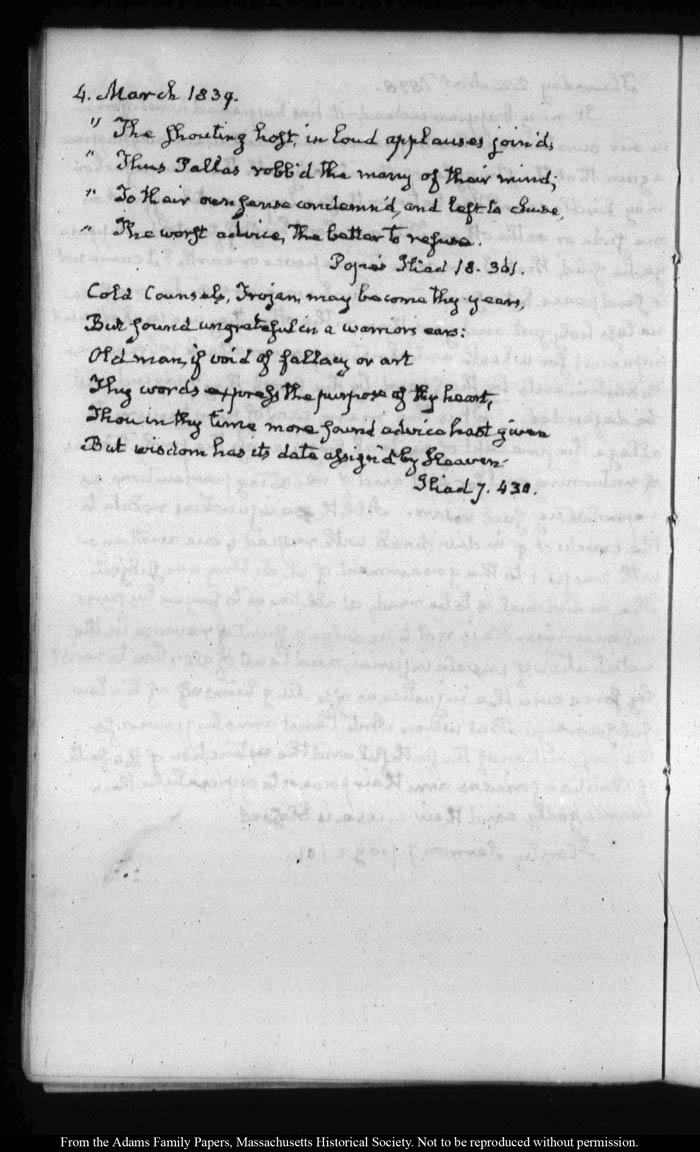 4. March 1839.
" The shouting host, in loud applauses join'd;
" Thus Pallas robb'd the many of their mind;
" To their own sense condemn'd, and left to chuse,
" The worst advice, the better to refuse.
Pope's Iliad 18. 361.
Cold Counsels, Trojan, may become thy years,
But sound ungrateful in a warriors ears:
Old man, if void of fallacy or art
Thy words express the purpose of thy heart,
Thou in thy time more sound advice hast given
But wisdom has its date assign'd by Heaven.
Iliad 7. 430.
From the Adams Family Papers, Massachusetts Historical Society. Not to be reproduced without permission.